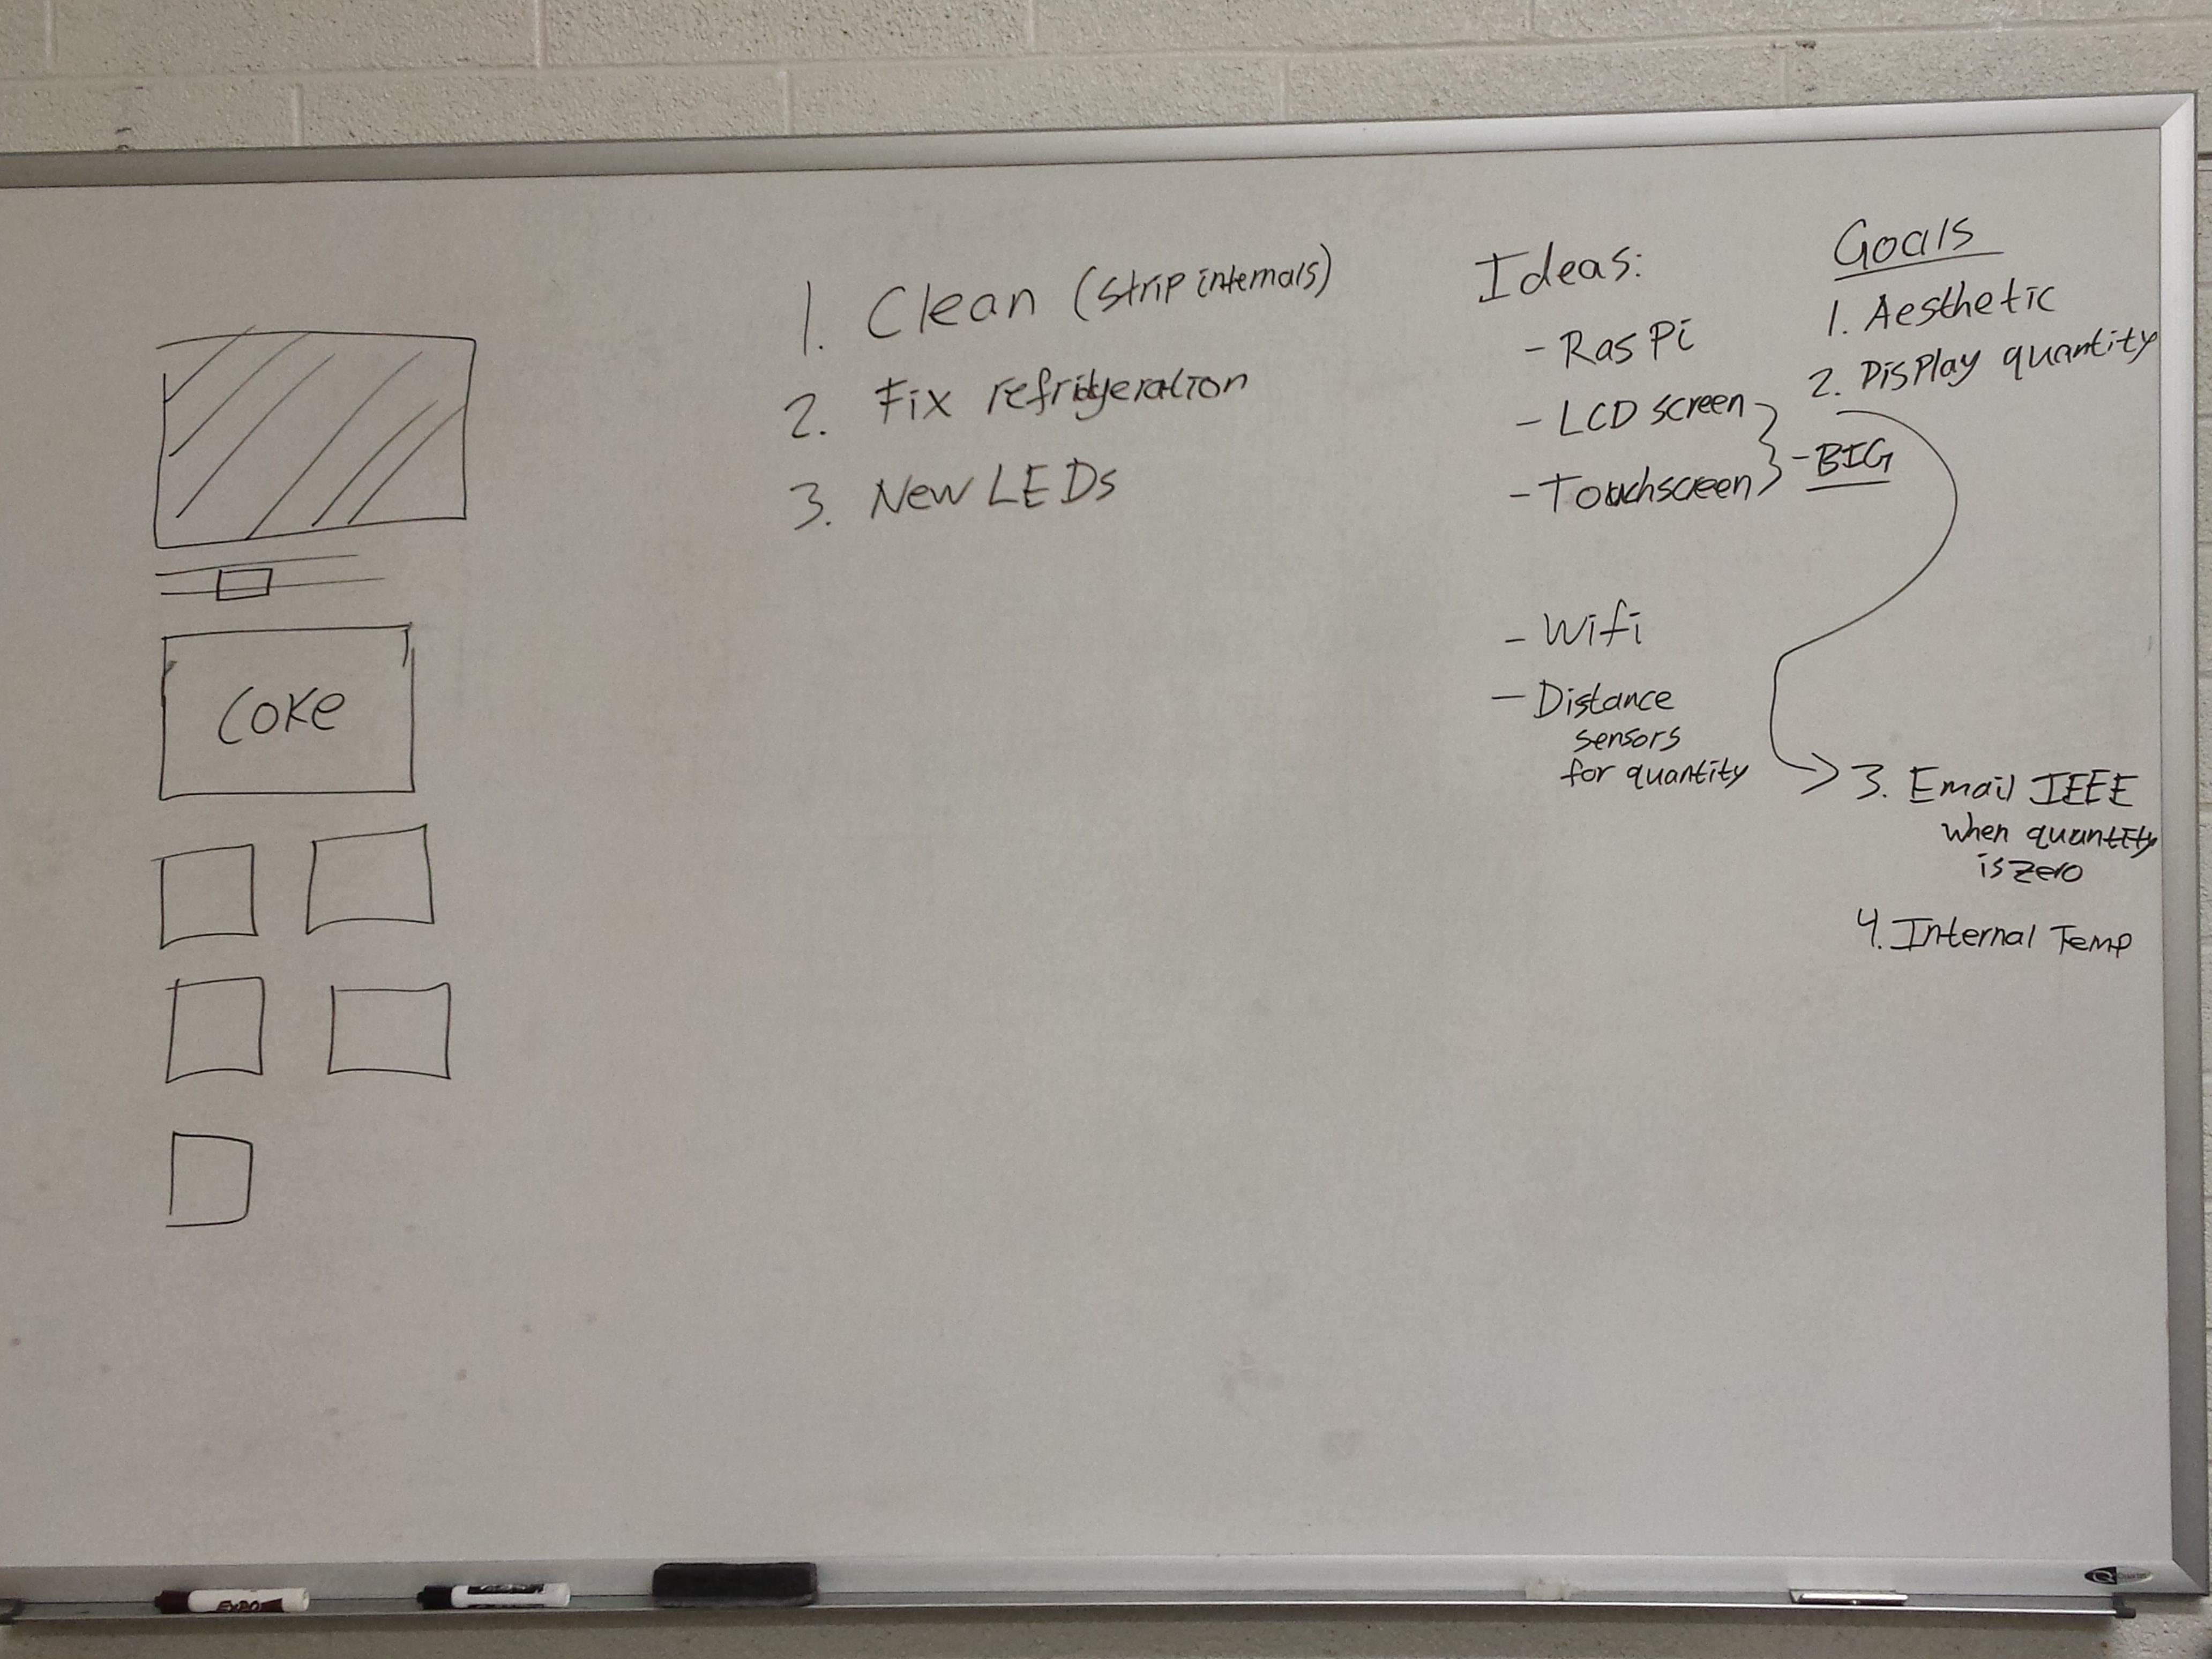 Coke
1. Clean (strip internals)
2. Fix refridgeration
3. New LEDs
Ideas:
- Ras Pi
- LCD screen
- Touchscreen
- BIG
- Wifi
- Distance
sensors
for quantity
Goals
1. Aesthetic
2. Display quantity
3. Email IEEE
when quantity
is zero
4. Internal Temp
EXPO